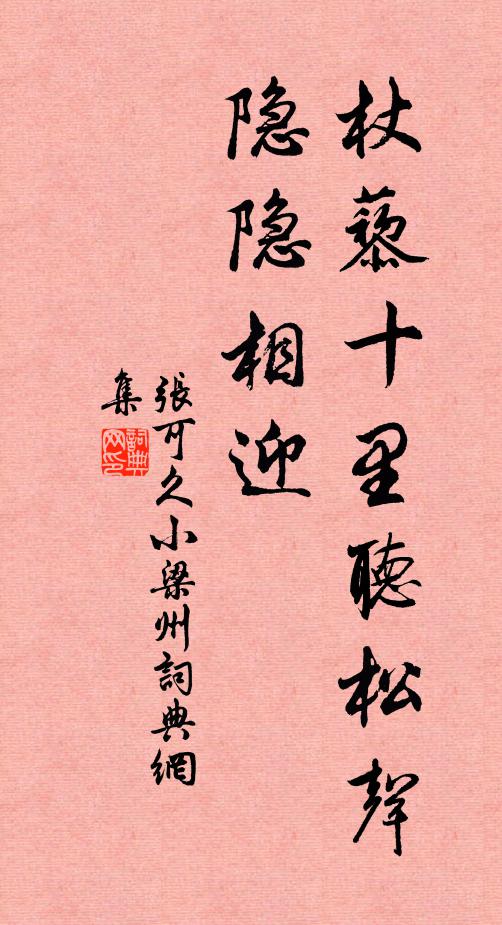 杖藜十里聽松聲
隐隐相迎
張可久小梁州詞典網
集
詞典
网印